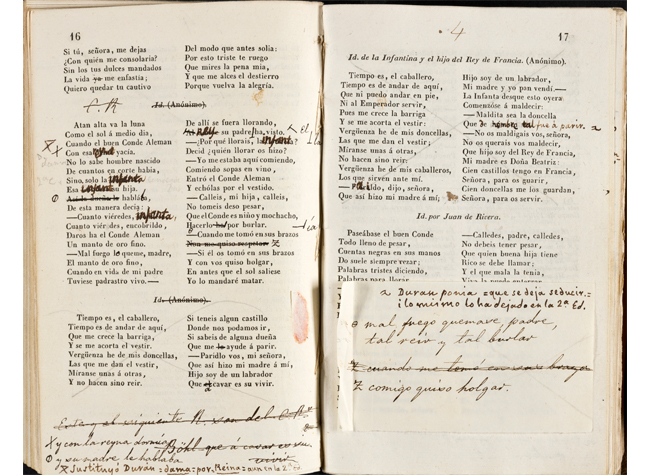 16
Si tú, señora, me dejas
¿Con quién me consolaria?
Sin los tus dulces mandados
La vida ya me enfastia;
Quiero quedar tu cautivo
Del modo que antes solia:
Por esto triste te ruego
Que mires la pena mia,
Y que me alces el destierro
Porque vuelva la alegría.
Id. (Anónimo).
Atan alta va la luna
Como el sol á medio dia,
Cuando el buen Conde Aleman
Con esa yacía.
No lo sabe hombre nascido
De cuantos en corte habia,
Sino solo la infanta
Esa infanta su hija.
hablaba,
De esta manera decia:
—Cuanto viéredes, infanta
Cuanto viéredes, encobrildo,
Daros ha el Conde Aleman
Un manto de oro fino.
—Mal fuego le queme, madre,
El manto de oro fino,
Cuando en vida de mi padre
Tuviese padrastro vivo.—
De allí se fuera llorando,
rey su padre ha visto.
—¿Por qué llorais, infanta?
Decid ¿quién llorar os hizo?
—Yo me estaba aquí comiendo,
Comiendo sopas en vino,
Entró el Conde Aleman
Y echólas por el vestido.
—Calleis, mi hija, calleis,
No tomeis deso pesar,
Que el Conde es niño y mochacho,
Hacerlo ha por burlar.
—Cuando me tomó en sus brazos
Non me quiso respetar
—Si él os tomó en sus brazos
Y con vos quiso holgar,
En antes que el sol saliese
Yo lo mandaré matar.
Id. (Anónimo).
Tiempo es, el caballero,
Tiempo es de andar de aquí,
Que me crece la barriga
Y se me acorta el vestir.
Vergüenza he de mis doncellas,
Las que me dan el vestir,
Miranse unas á otras,
Y no hacen sino reir.
Si teneis algun castillo
Donde nos podamos ir,
Si sabeis de alguna dueña
Que me lo ayude á parir.
—Paridlo vos, mi señora,
Que así hizo mi madre á mí;
Hijo soy de un labrador
Que á cavar es su vivir.
Esta y el siguiente R. van del C. R.
X y con la reyna dormia
Böhl que á cavar es su vivir
O y su madre le hablaba
Z Sustituyó Duran = dama = por Reina = aun en la 2ª Ed
4
17
Id. de la Infantina y el hijo del Rey de Francia. (Anónimo).
Tiempo es, el caballero,
Tiempo es de andar de aquí,
Que ni puedo andar en pie,
Ni al Emperador servir,
Pues me crece la barriga
Y se me acorta el vestir:
Vergüenza he de mis doncellas,
Las que me dan el vestir;
Míranse unas á otras,
No hacen sino reir:
Vergüenza he de mis caballeros,
Los que sirven ante mí.
—Parildo, dijo, señora,
Que así hizo mi madre á mí;
Hijo soy de un labrador,
Mi madre y yo pan vendí.—
La Infanta desque esto oyera
Comenzóse á maldecir:
—Maldita sea la doncella
Que de hombre tal fue á parir. z
—No os maldigais vos, señora,
No os querais vos maldecir,
Que hijo soy del Rey de Francia,
Mi madre es Doña Beatriz:
Cien castillos tengo en Francia,
Señora, para os guarir,
Cien doncellas me los guardan,
Señora, para os servir.
Id. por Juan de Rivera.
Paseábase el buen Conde
Todo lleno de pesar,
Cuentas negras en sus manos
Do suele siempre rezar;
Palabras tristes diciendo,
Palabras para llorar.
—Calledes, padre, calledes,
No debeis tener pesar,
Que quien buena hija tiene
Rico se debe llamar;
Y el que mala la tenia,
z Duran ponia = que se deja seducir =
i lo mismo lo ha dejado en la 2ª Ed.
mal fuego quemave padre,
tal reir y tal burlar
Z cuando me tomó en sus brazos
Z comigo quiso holgar.